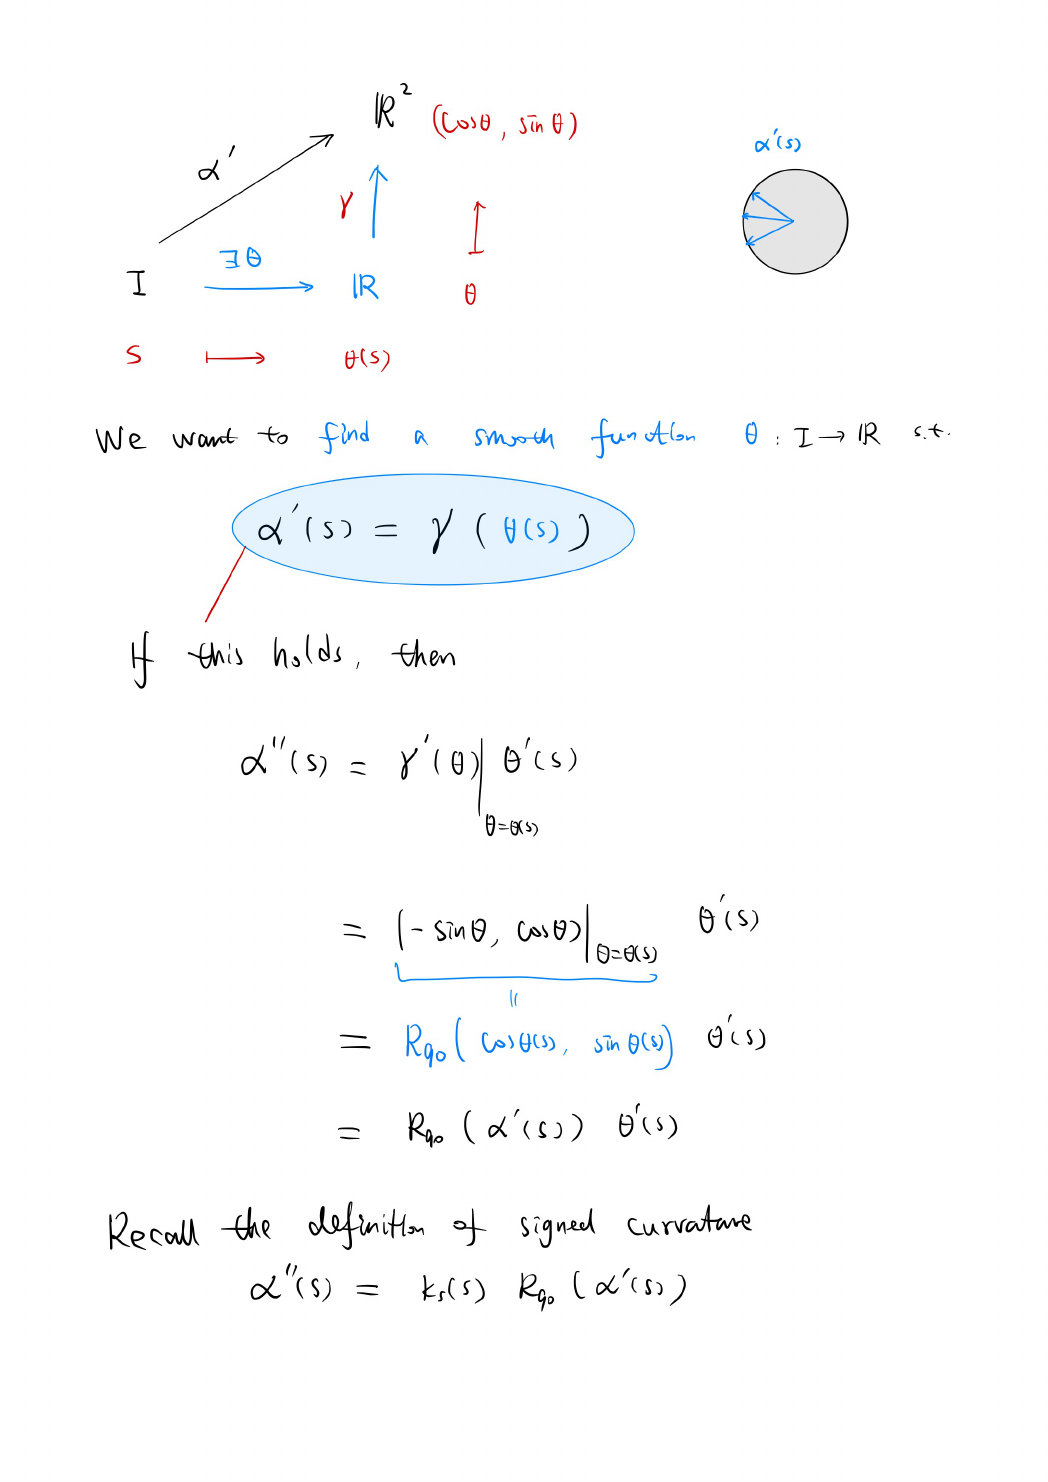 ℝ² (cosθ, sinθ)
α′
α′(s)
γ
∃θ
I ℝ θ
s ↦ θ(s)
We want to find a smooth function θ : I → ℝ s.t.
α′(s) = γ(θ(s))
If this holds, then
α″(s) = γ′(θ)|θ=θ(s) θ′(s)
= (-sinθ, cosθ)|θ=θ(s) θ′(s)
॥
= R₉₀(cosθ(s), sinθ(s)) θ′(s)
= R₉₀(α′(s)) θ′(s)
Recall the definition of signed curvature
α″(s) = kₛ(s) R₉₀(α′(s))